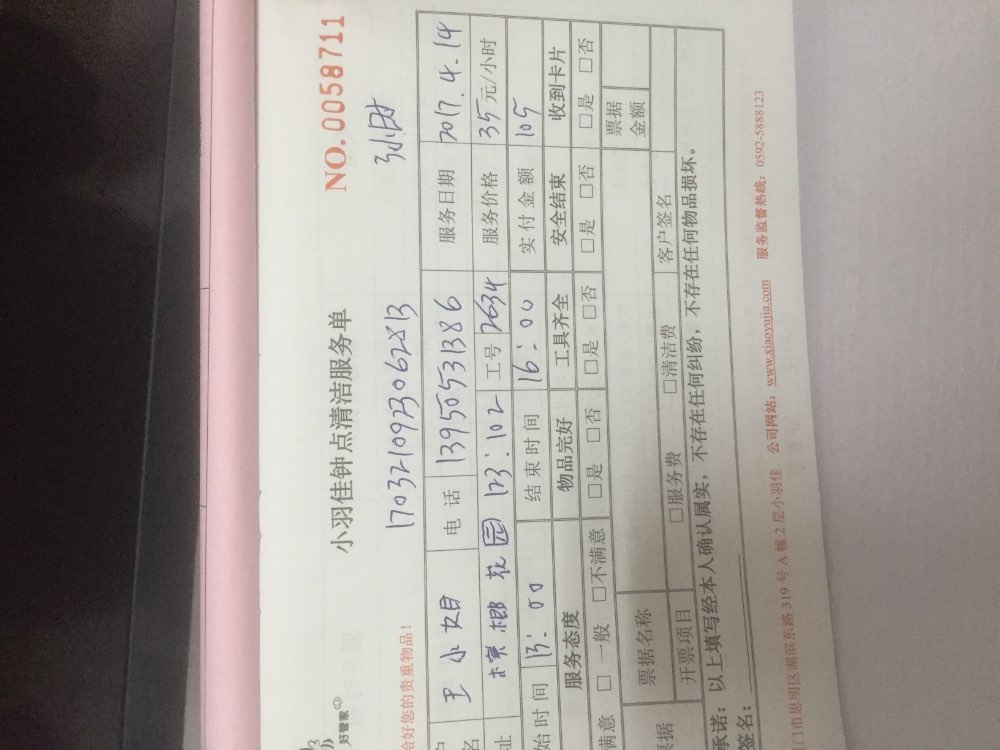 NO.0058711
小羽佳钟点清洁服务单
好管家
1703210923062813 3小时
恰好您的贵重物品!
王小姐 电话 13950531386 服务日期 2017.4.14
址 槟榔花园 123-102 工号 2634 服务价格 35元/小时
始时间 13:00 结束时间 16:00 实付金额 105
服务态度 物品完好 工具齐全 安全结束 收到卡片
满意 □一般 □不满意 □是 □否 □是 □否 □是 □否 □是 □否
票据 票据名称 票据金额
开票项目 □服务费 □清洁费 客户签名
承诺:以上填写经本人确认属实,不存在任何纠纷,不存在任何物品损坏。
签名:
门市思明区湖滨东路 319 号 A 幢 2 层小羽佳 公司网站:www.xiaoyujia.com 服务监督热线:0592-5888123